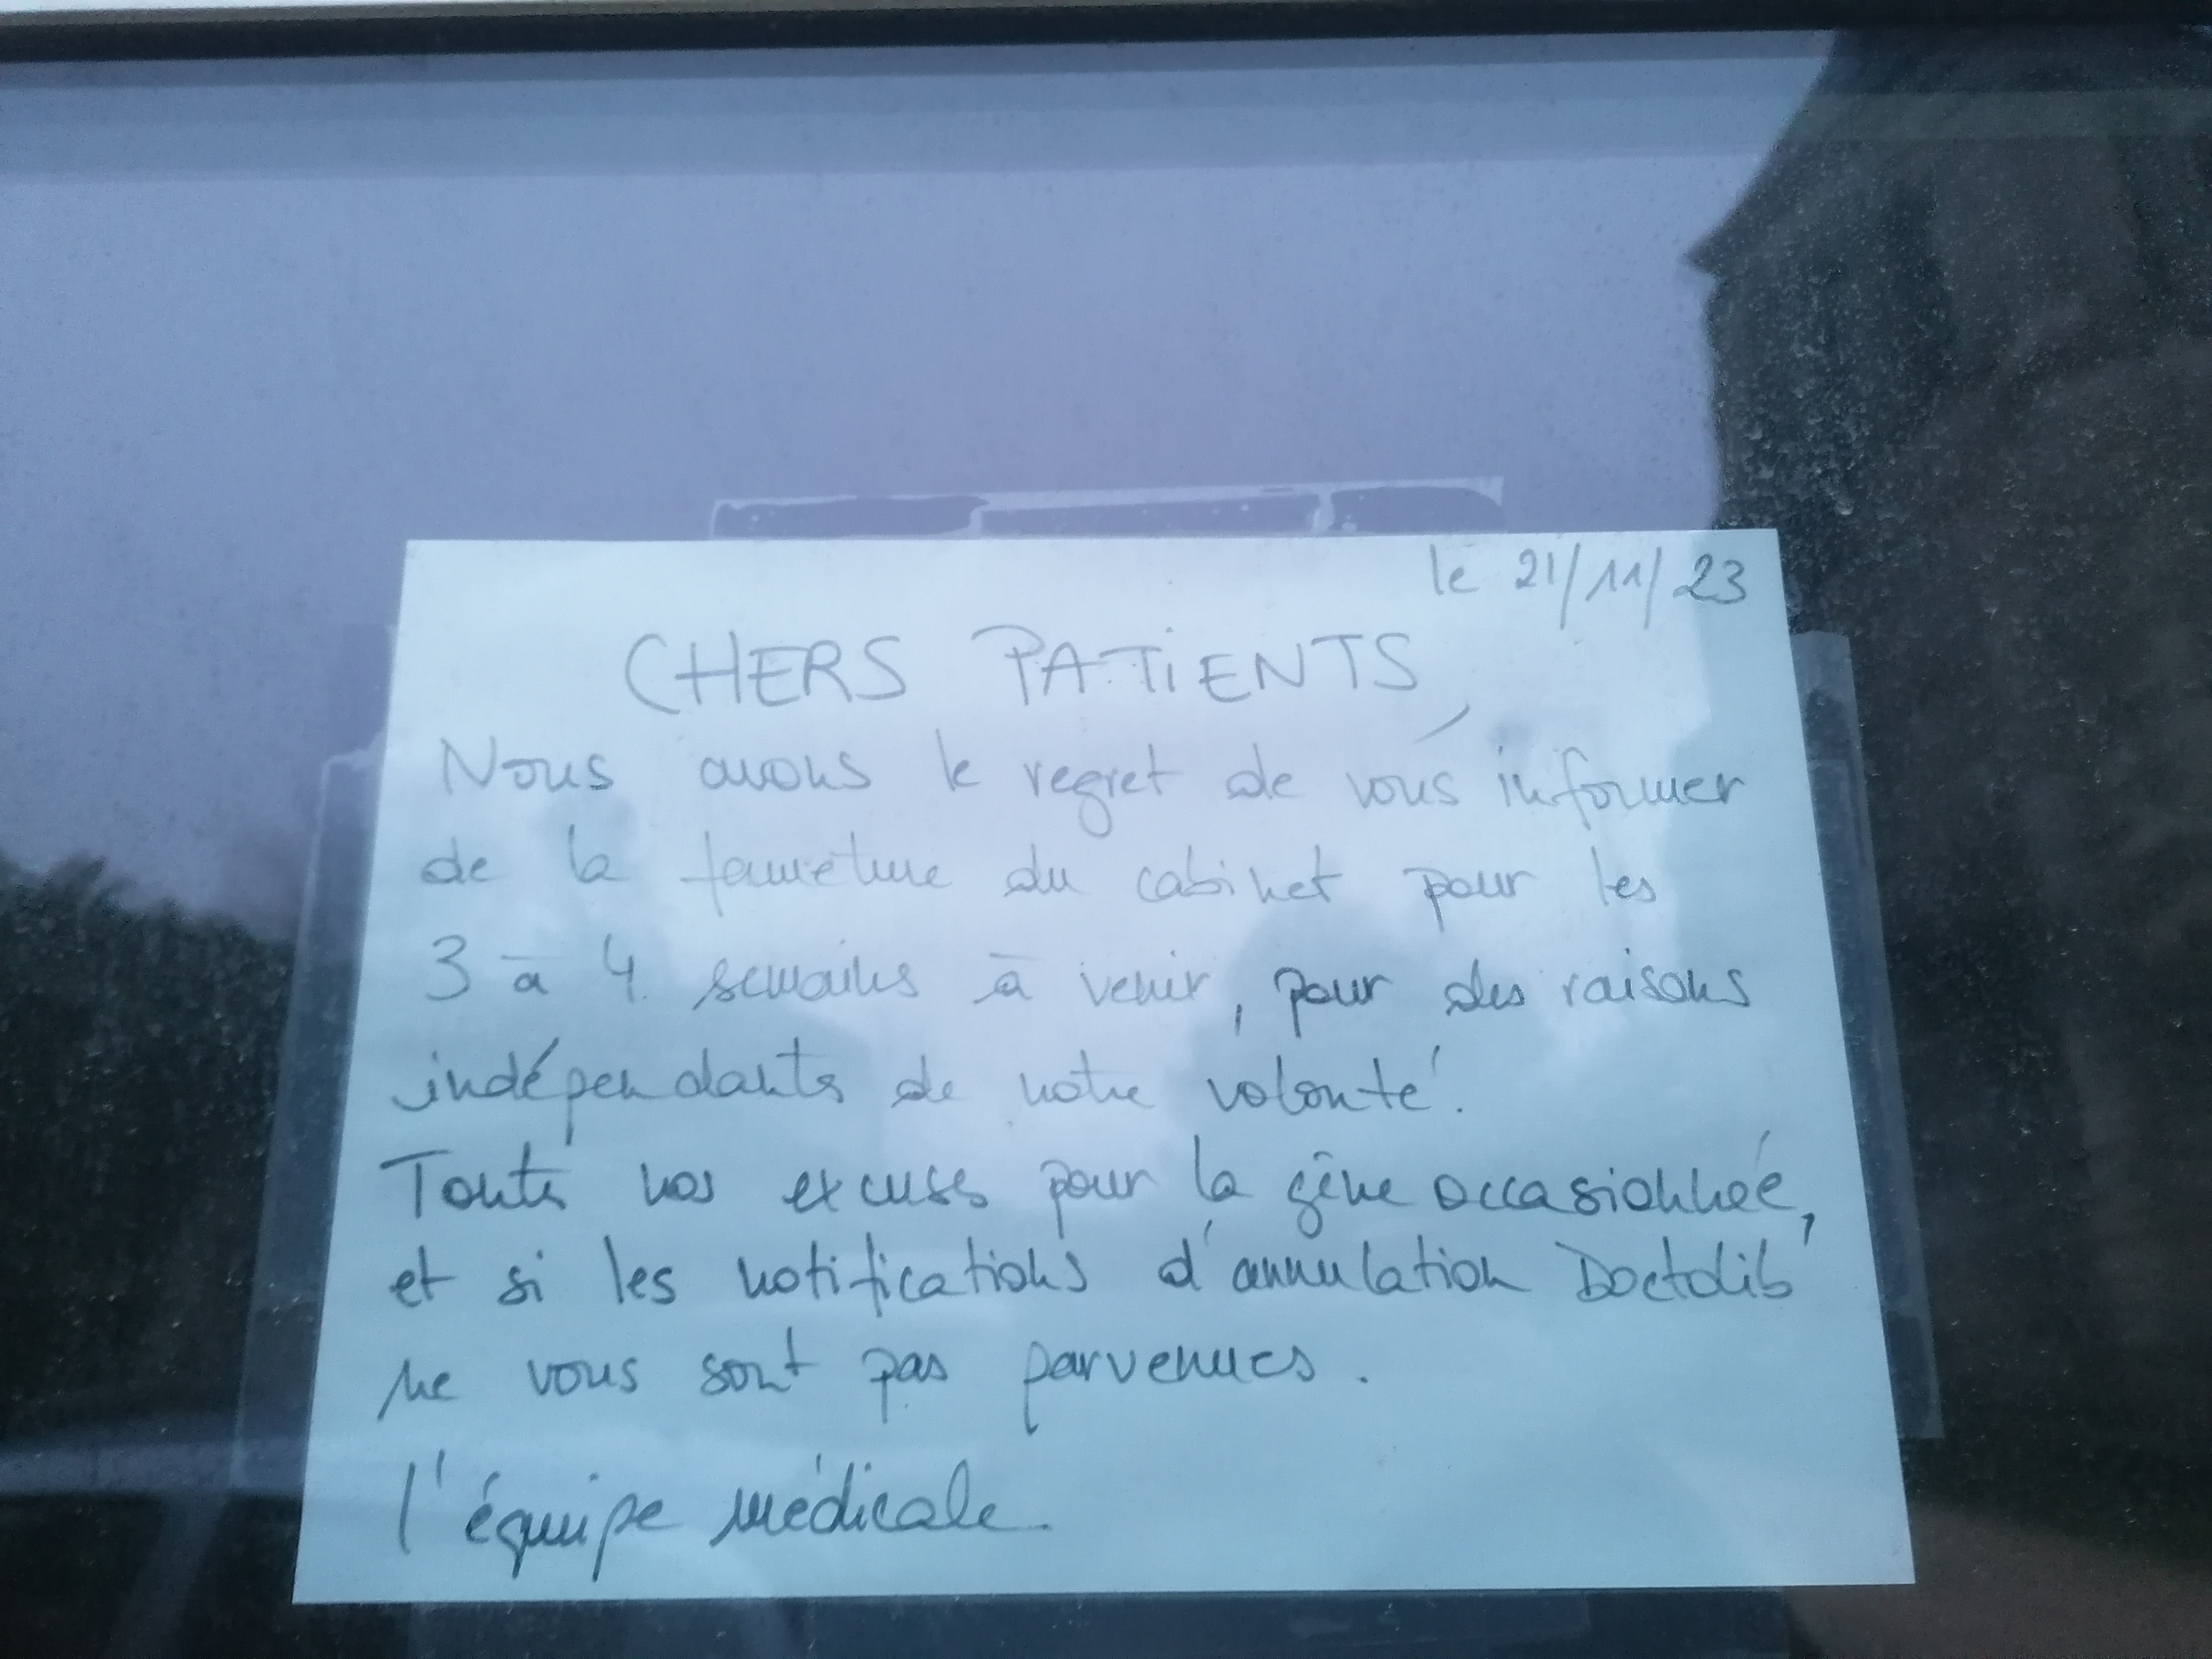 le 21/11/23
CHERS PATIENTS,
Nous avons le regret de vous informer
de la fermeture du cabinet pour les
3 à 4 semaines à venir, pour des raisons
indépendants de notre volonté.
Toutes nos excuses pour la gêne occasionnée,
et si les notifications d'annulation Doctolib
ne vous sont pas parvenues.
l'équipe médicale.